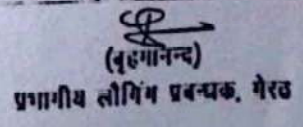 (बृहमानन्द)
प्रभागीय लौगिंग प्रबन्धक, मेरठ